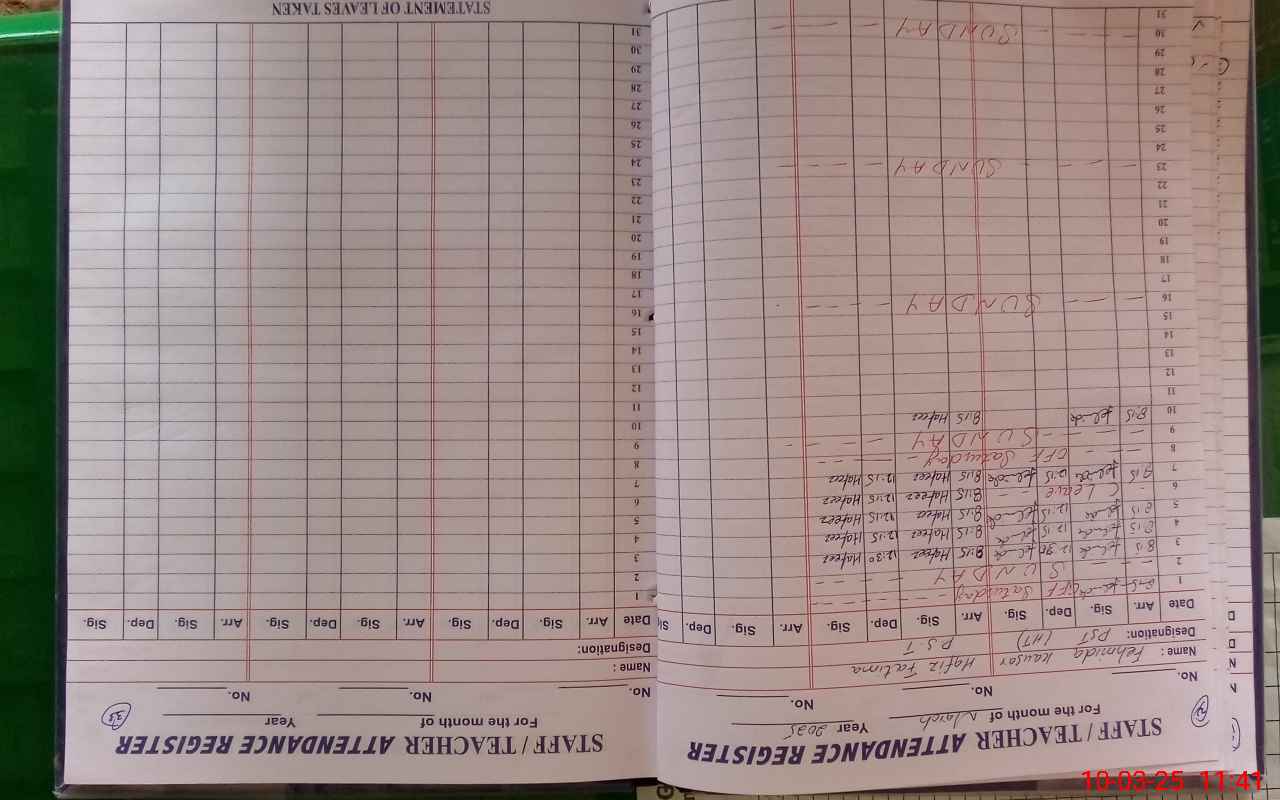 STAFF / TEACHER ATTENDANCE REGISTER
For the month of March Year 2025
No. No. No.
Name : Fehmida Kausar Hafiz Fatima
Designation: PST (HT) P.S.T
Date Arr. Sig. Dep. Sig. Arr. Sig. Dep. Sig. Arr. Sig. Dep. Sig.
1 8:15 OFF Saturday
2 SUNDAY
3 8:15 12:30 8:15 Hafeez 12:30 Hafeez
4 8:15 12:15 8:15 Hafeez 12:15 Hafeez
5 8:15 12:15 8:15 Hafeez 12:15 Hafeez
6 C Leave 8:15 Hafeez 12:15 Hafeez
7 8:15 12:15 8:15 Hafeez 12:15 Hafeez
8 OFF Saturday
9 SUNDAY
10 8:15 8:15 Hafeez
11
12
13
14
15
16 SUNDAY
17
18
19
20
21
22
23 SUNDAY
24
25
26
27
28
29
30 SUNDAY
31
33
STAFF / TEACHER ATTENDANCE REGISTER
For the month of Year
No. No. No.
Name :
Designation:
Date Arr. Sig. Dep. Sig. Arr. Sig. Dep. Sig. Arr. Sig. Dep. Sig.
1
2
3
4
5
6
7
8
9
10
11
12
13
14
15
16
17
18
19
20
21
22
23
24
25
26
27
28
29
30
31
STATEMENT OF LEAVES TAKEN
10-03-25 11:41